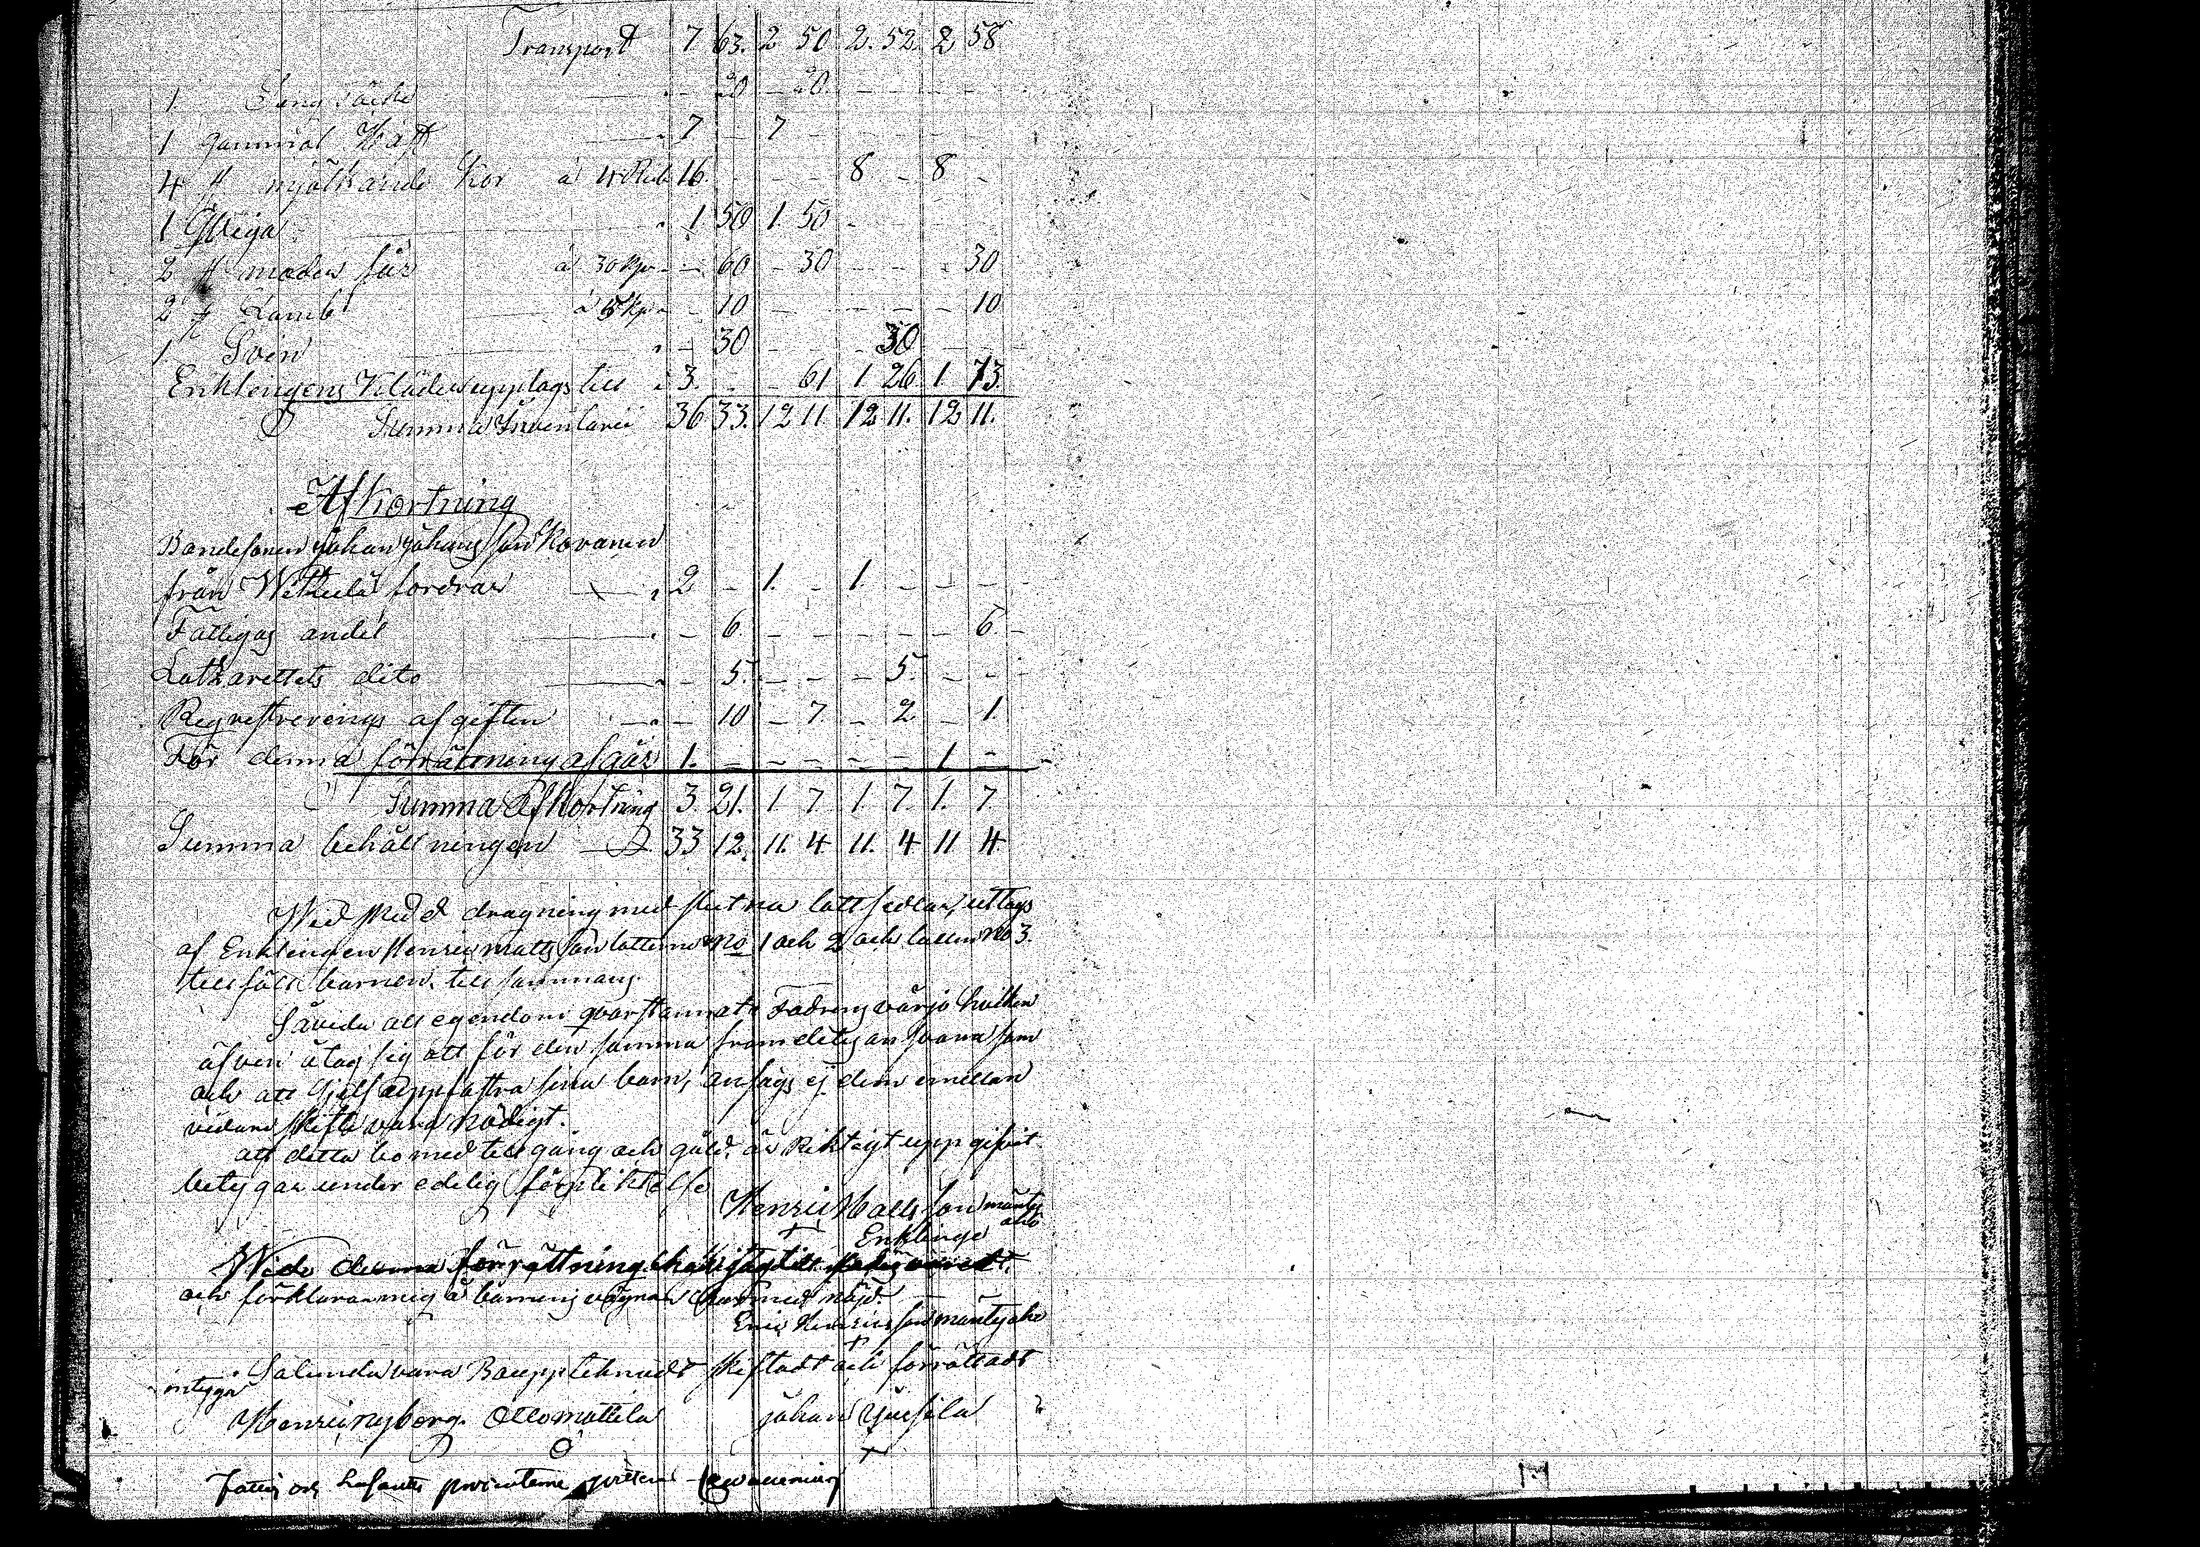 Transport 7 63. 2 50 2. 52 2 58
1 Seng täcke - 20 - 20 - - - -
1 gammal Häst 7 - 7 - - - - -
4 st mjölkande kor à 4 Rub 16. - - - 8 - 8 -
1 Qviga 1 50 1 50 - - - -
2 st moder får à 30 kp - 60 - 30 - - - 30
2 st Lamb à 5 kp - 10 - - - - - 10
1 Svin - 30 - - - 30 - -
Enklingens Kläder upptogs till 3. - - 61 1 26 1 73.
Summa Inventarii 36 33. 12 11 12 11. 12 11.
Afkortning
Bondesonen Johan Johansson Kovanen
från fordrar 2 - 1. - 1. - - -
Fattigas andel - 6 - - - - - 6
Latzarettets dito - 5. - - - 5. - -
Regrestrerings afgiften - 10 - 7 - 2 - 1.
För denna förrättning afgår 1. - - - - - 1 -
Summa Afkortning 3 21. 1 7 1 7 1. 7
Summa behållningen 33 12. 11. 4 11. 4 11 4
Wed skedd dragning med slutna lottsedlar, uttogs
af Enklingen Henric Matsson lotterne No 1 och 2 och lotten No 3.
tillföll barnen tillsammans.
Såvida all egendom qvarstannat i Fadrens värjo hvilken
äfven åtog sig att för den samma framdeles ansvara som
och att sjelf uppfostra sina barn, ansågs ej dem emellan
vidare skifte vara nödigt.
att detta bo med tillgång och gäld är Riktigt uppgifvit
betygar under edelig förpliktelse
Henric Matsson
Enklinge
Wid denna förrättning har
och förklarar mig å barnens vägnar dermed nöjd.
Eric Henricsson Mäntyaho
Sålunda vara Bouppteknadt skiftadt och förrättadt
intyga
Henric Nyborg. Otto Mattila Johan Yrjölä
Fattig och